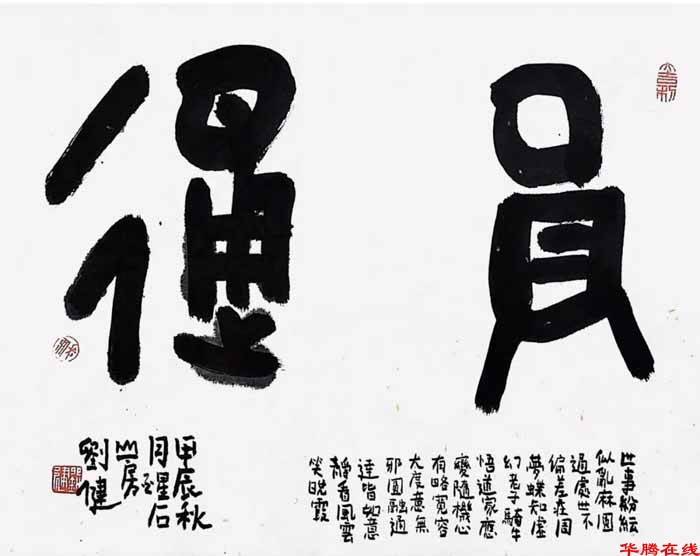 員
通
世事紛紜
似亂麻圓
通處世不
偏差莊周
夢蝶知虛
幻老子騎牛
悟道家應
變隨機心
有略寬容
大度意無
邪圓融通
達皆如意
靜看風雲
笑晚霞
甲辰秋
月星石
山房
劉健
华腾在线